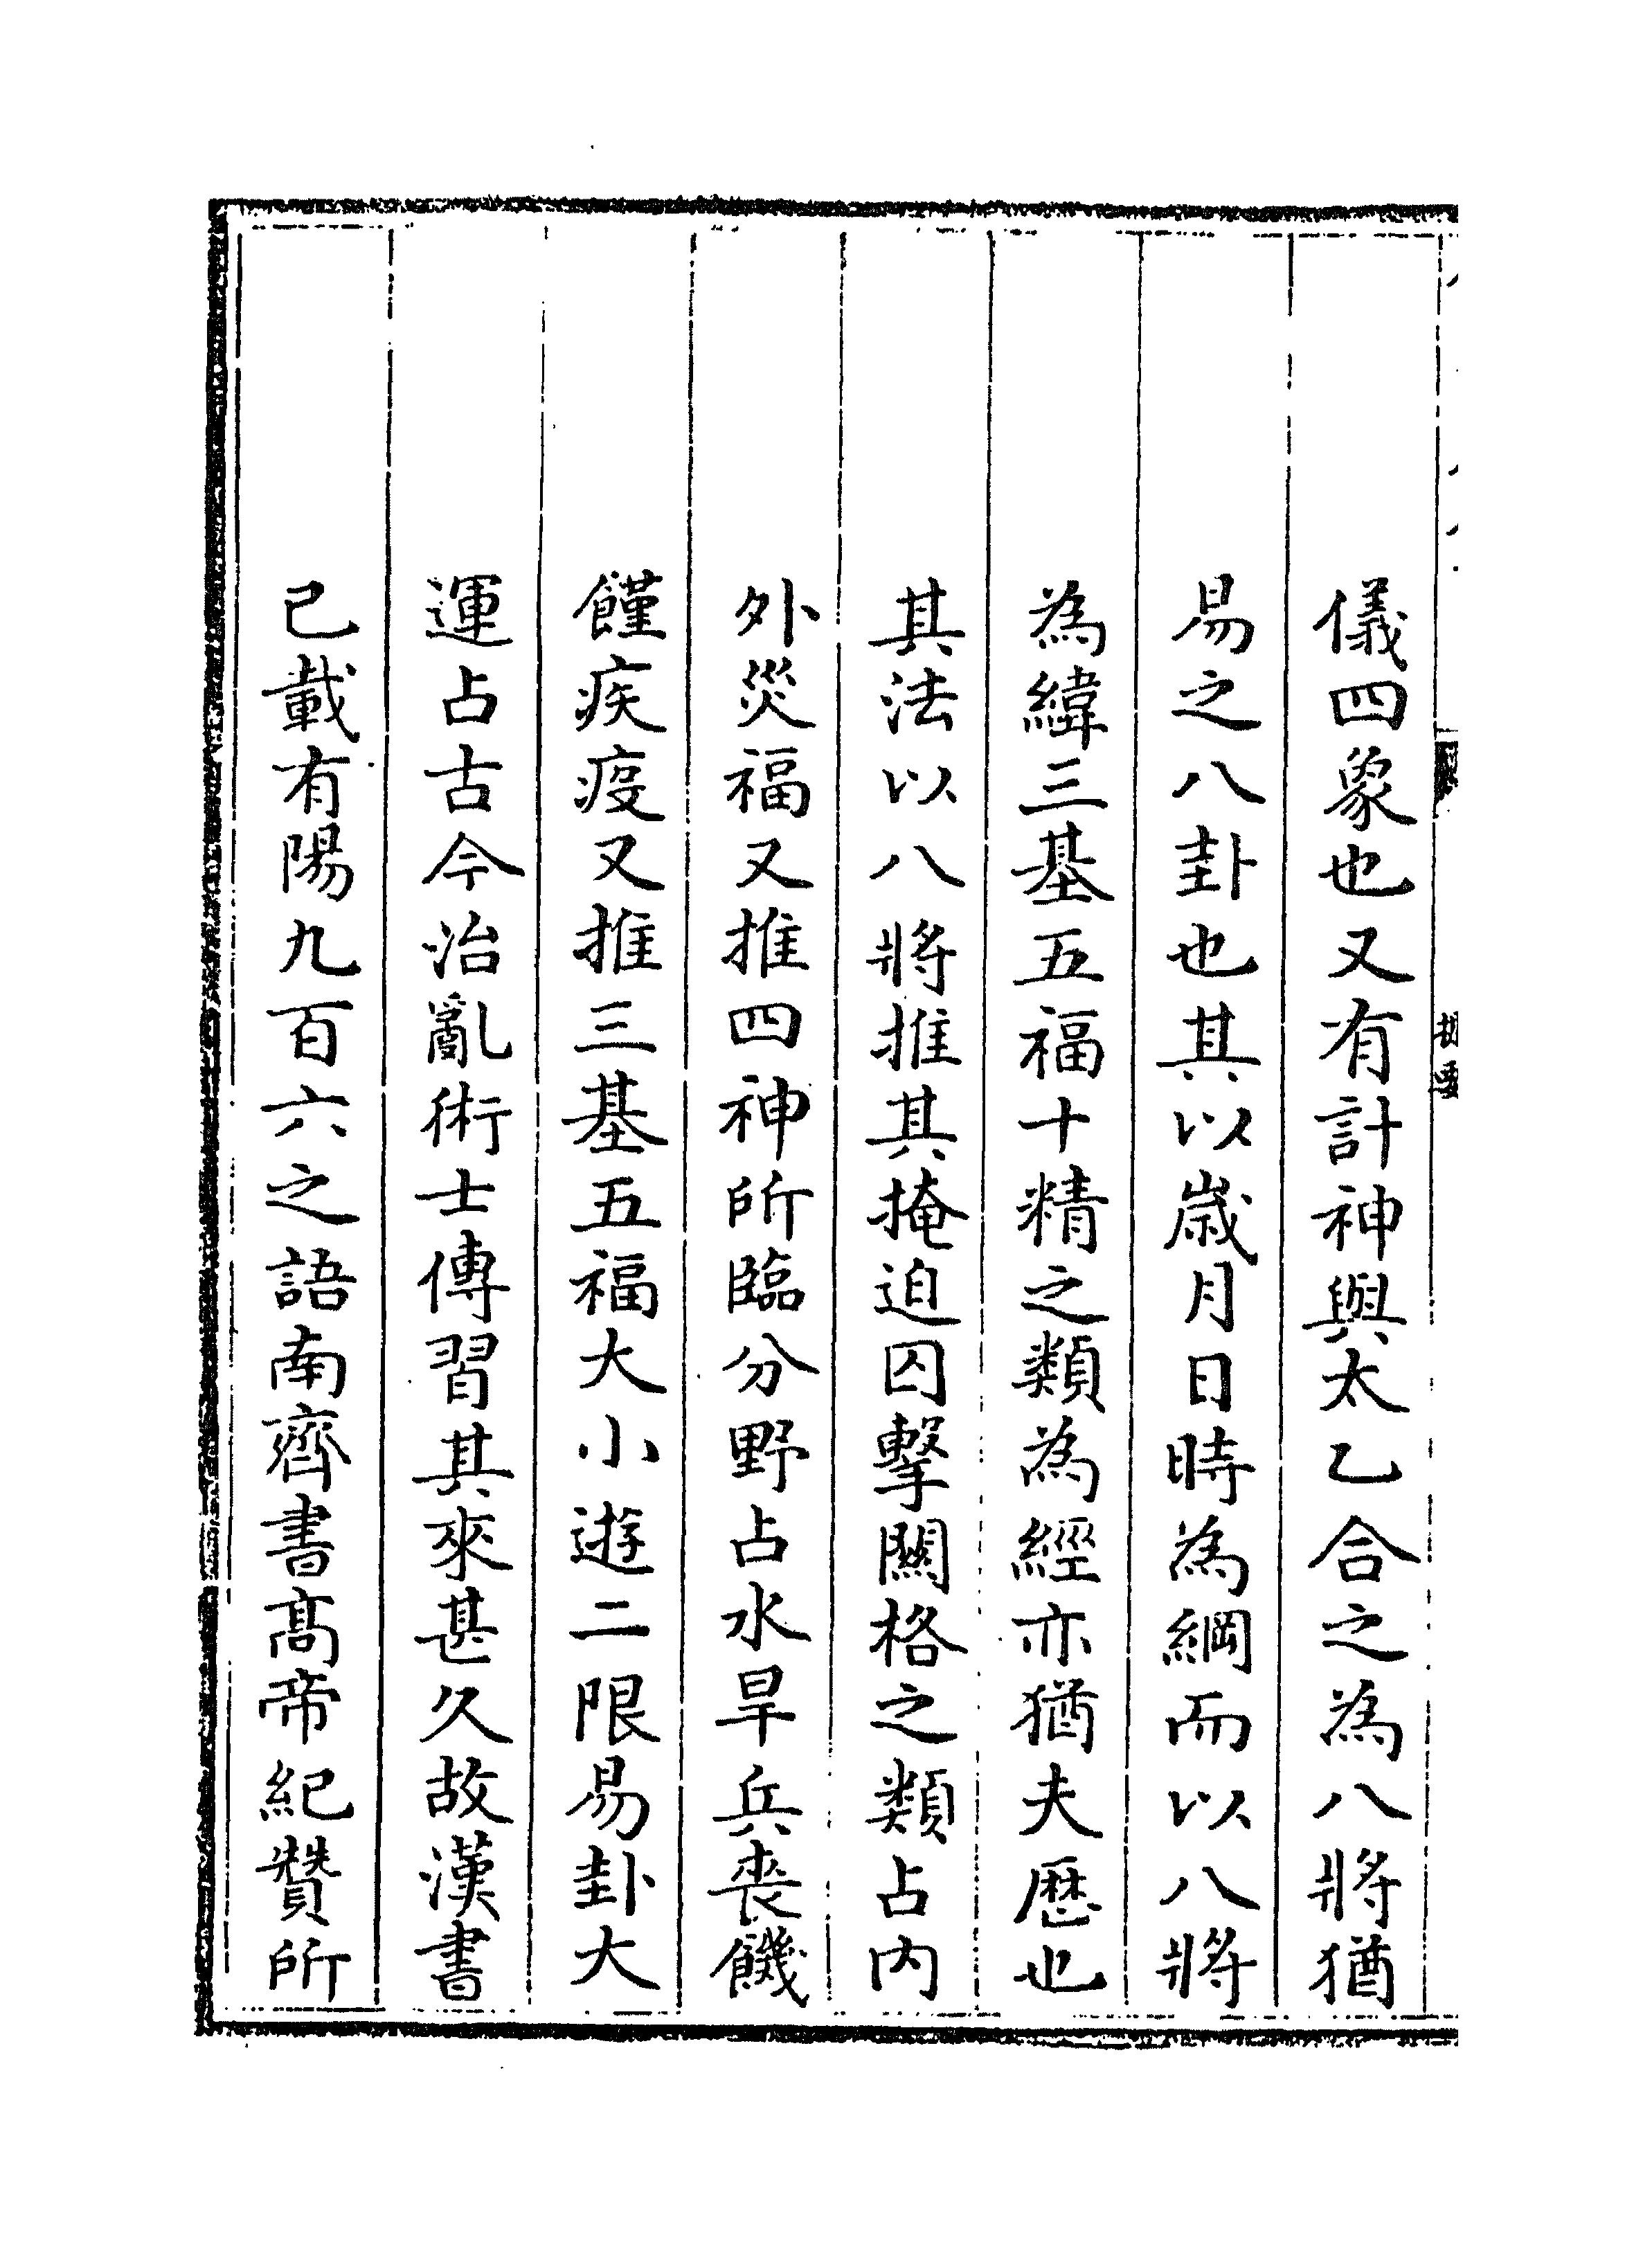 儀四象也又有計神與太乙合之為八將猶
易之八卦也其以歲月日時為綱而以八將
為緯三基五福十精之類為經亦猶夫歴也
其法以八將推其掩迫囚擊關格之類占內
外災福又推四神所臨分野占水旱兵喪饑
饉疾疫又推三基五福大小遊二限易卦大
運占古今治亂術士傳習其來甚久故漢書
已載有陽九百六之語南齊書高帝紀贊所